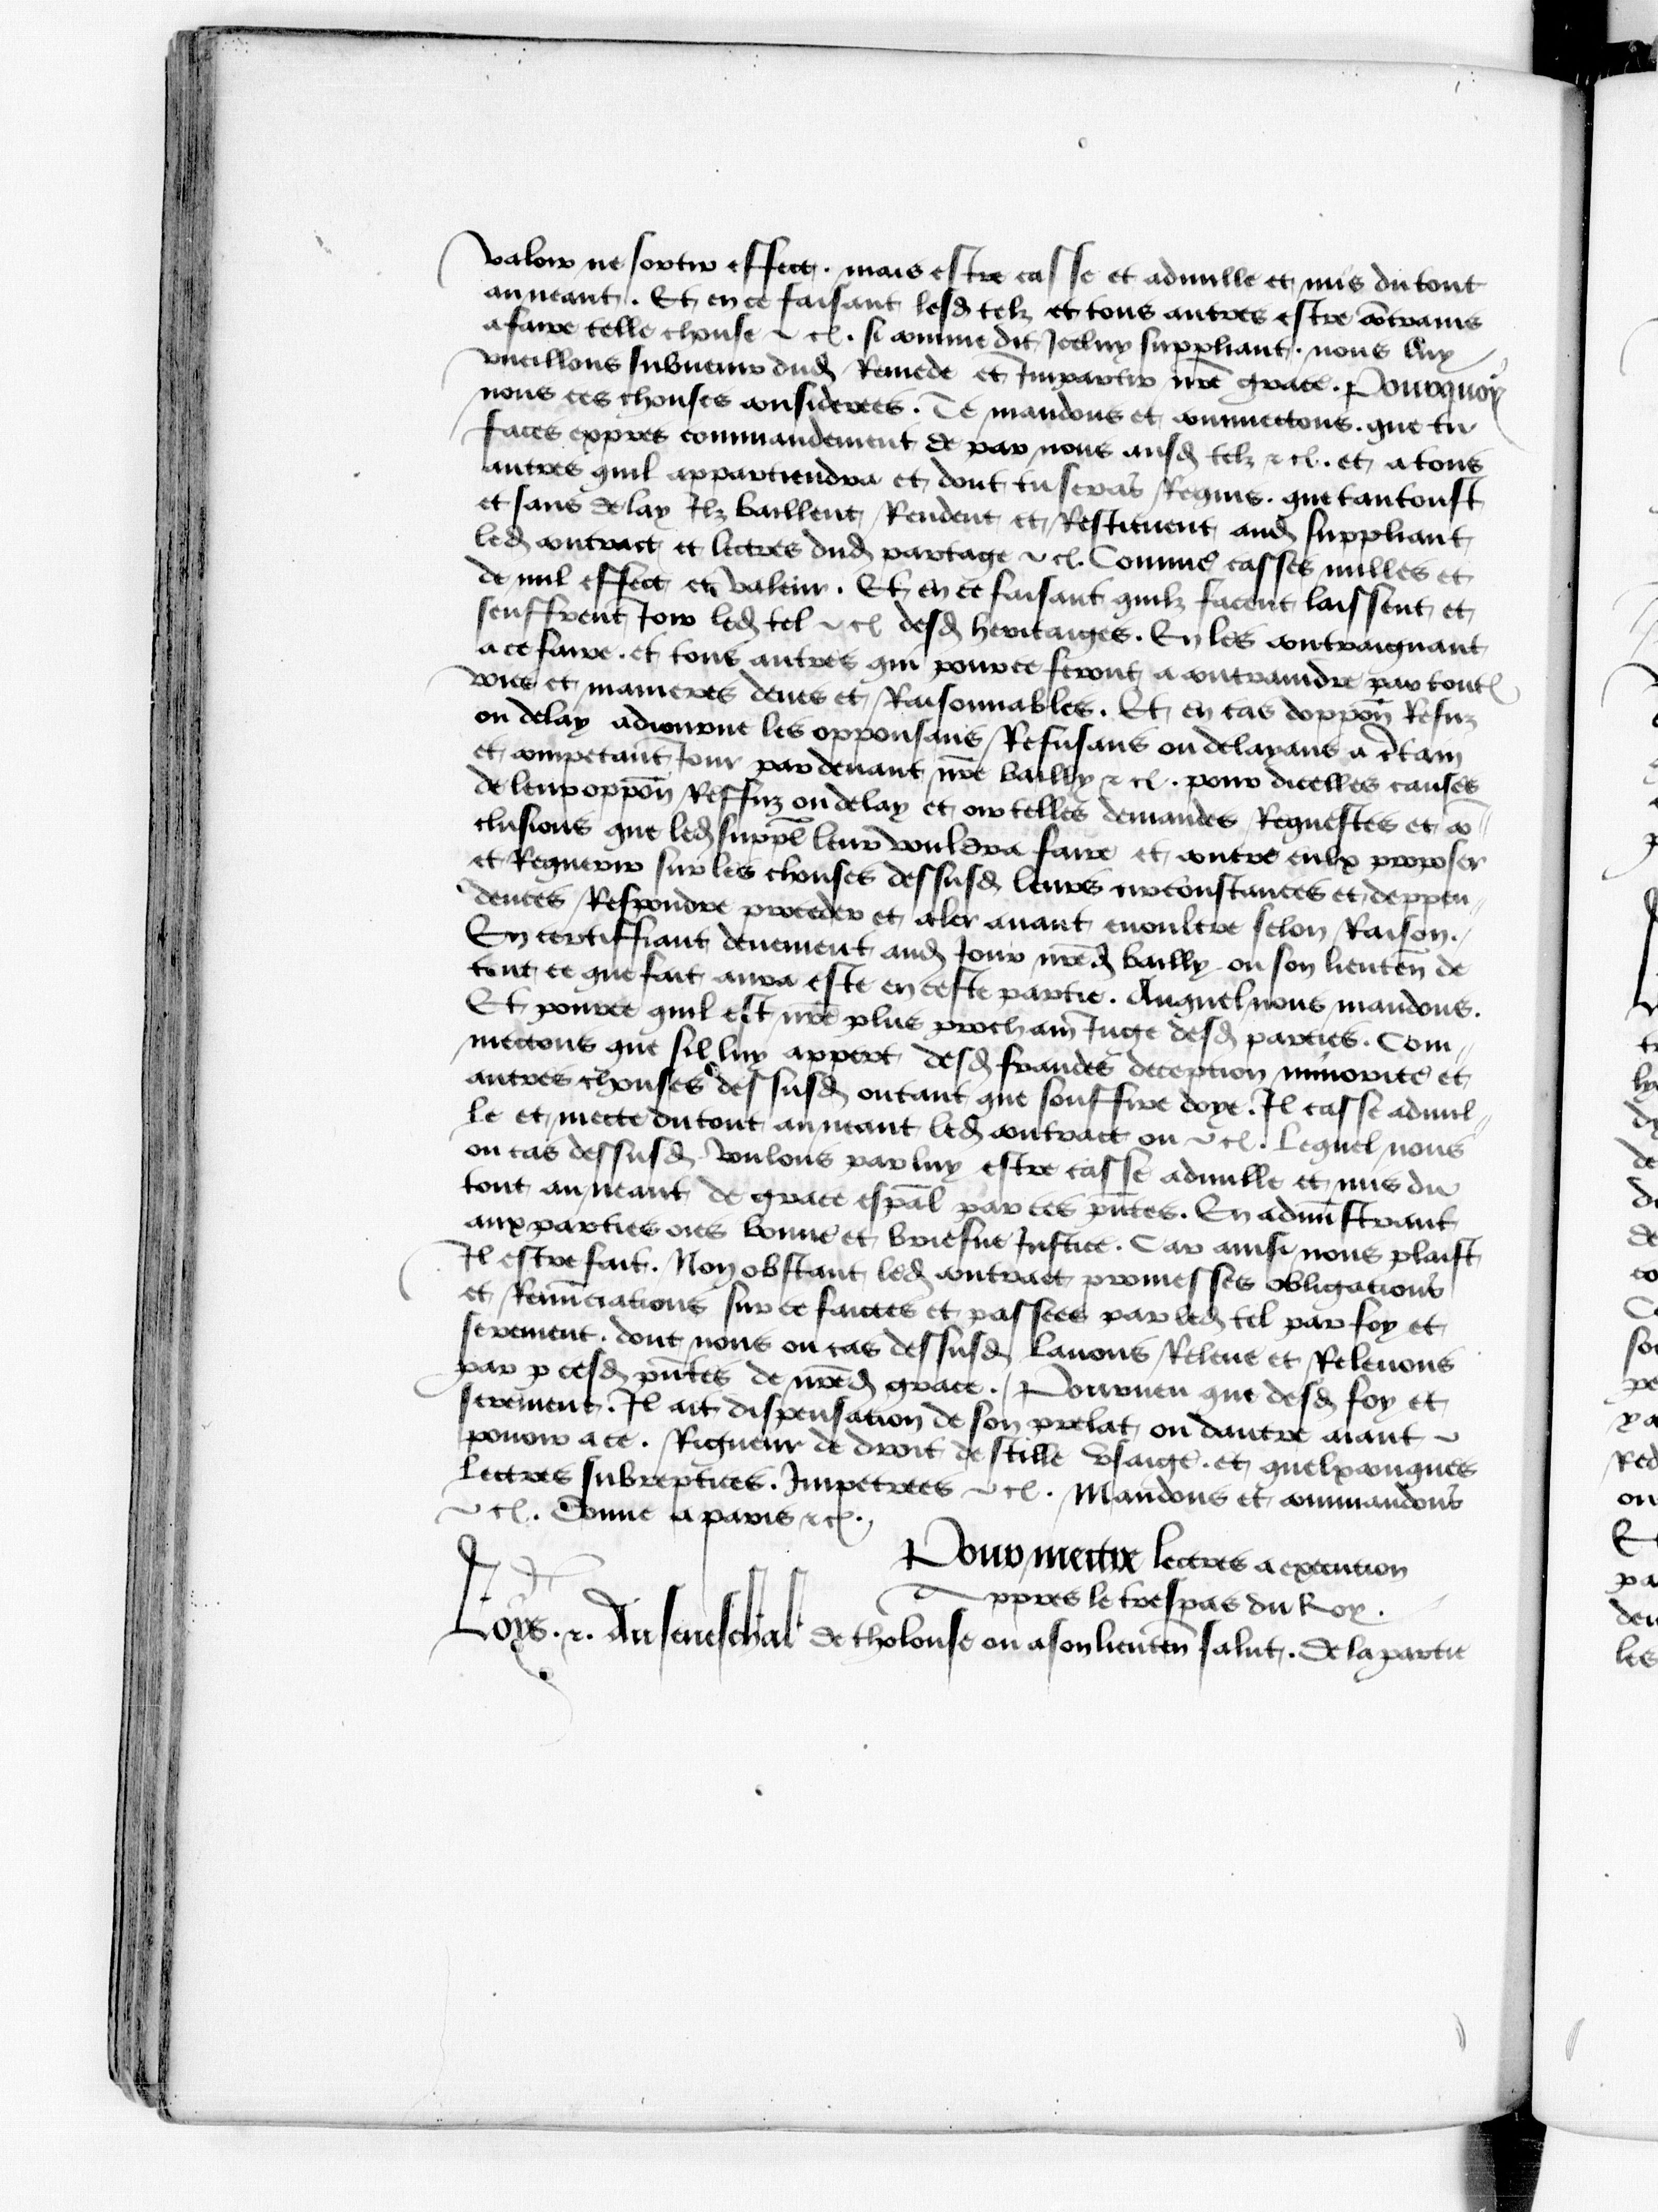 valoir ne sortir effect. mais estre casse et adnulle et mis du tout
au neant. Et en ce faisant lesd telz et tous autres estre cōtrains
a faire telle chouse &c. si comme dit Icelluy suppliant. nous luy
vueillons subuenir dud Remede et Impartir nrē grace. Pourquoy
nous ces chouses considerees. Te mandons et commectons. que tu
faces exppres commandement de par nous ausd telz &c. et a tous
autres quil appartiendra et dont tu seras Requis. que tantoust
et sans delay Ilz baillent Rendent et Restituent aud suppliant
led contract et lectres dud partage &c. Comme casses nulles et
de nul effect et valeur. Et en ce faisant quilz facent laissent et
seuffrent Joir led tel &c desd heritaiges. En les contraignant
a ce faire. et tous autres qui pour ce seront a contraindre par toutes
voies et manieres deues et Raisonnables. Et en cas doppōn Refuz
ou delay adiourne les opposans Refusans ou delayans a c̄tain
et competant Jour par deuant nrē bailly &c. pour dicelles causes
de leur oppōn Reffuz ou delay et oir telles demandes Requestes et cō-
clusions que led suppl̄ leur vouldra faire et contre eulx proposer
et Requerir sur les chouses dessusd leurs circonstances et deppen-
dences Respondre proceder et aler auant en oultre selon Raison.
En certiffiant deuement aud Jour nrēd bailly ou son lieuten̄ de
tout ce que fait aura este en ceste partie. Auquel nous mandons.
Et pource quil est nrē plus prochain Juge desd parties. Com-
mectons que sil luy appert desd fraudes deception minorite et
autres chouses dessusd ou tant que souffire doye. Il casse adnul-
le et mecte du tout au neant led contract ou &c. Lequel nous
ou cas dessusd voulons par luy estre casse adnulle et mis du
tout au neant de grace esp̄al par ces pn̄tes. En admīstrant
aux parties oies bonne et briefue Justice. Car ainsi nous plaist
Il estre fait. Non obstant led contract promesses obligations
et Renūciations sur ce faictes et passees par led tel par foy et
serement. dont nous ou cas dessusd lauons Releue et Releuons
par p cesd pn̄tes de nrēd grace. Pourueu que desd foy et
serement. Il ait dispensation de son prelat ou dautre aiant
pouoir a ce. Rigueur de droit de stille vsaige. et quelxconques
Lectres subreptices. Impetrees &c. Mandons et commandons
&c. Donne a paris &c.
Pour mectre lectres a execution
Appres le trespas du Roy.
Loys. &. Au seneschal de tholouse ou a son lieuten̄ salut. De la partie